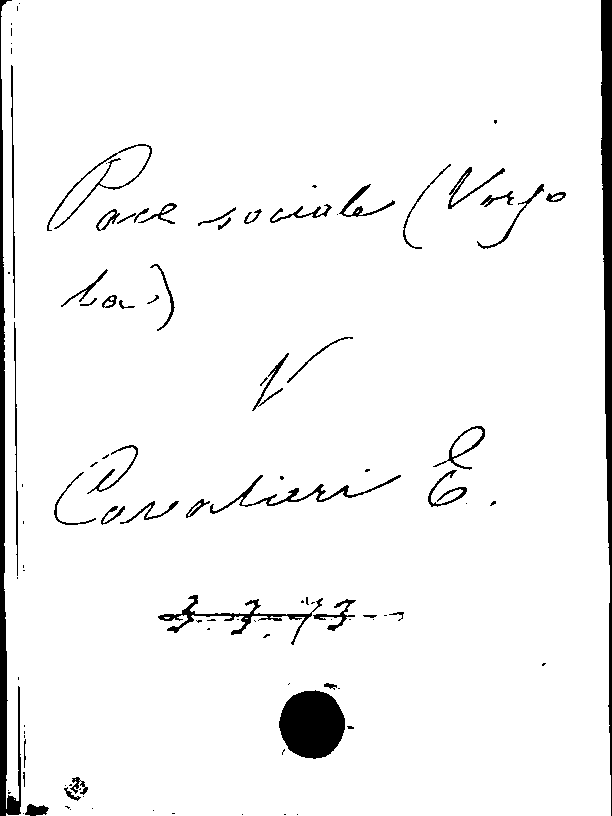 Pace sociale (Verso
la)
V
Cavalieri E.
3.3.73